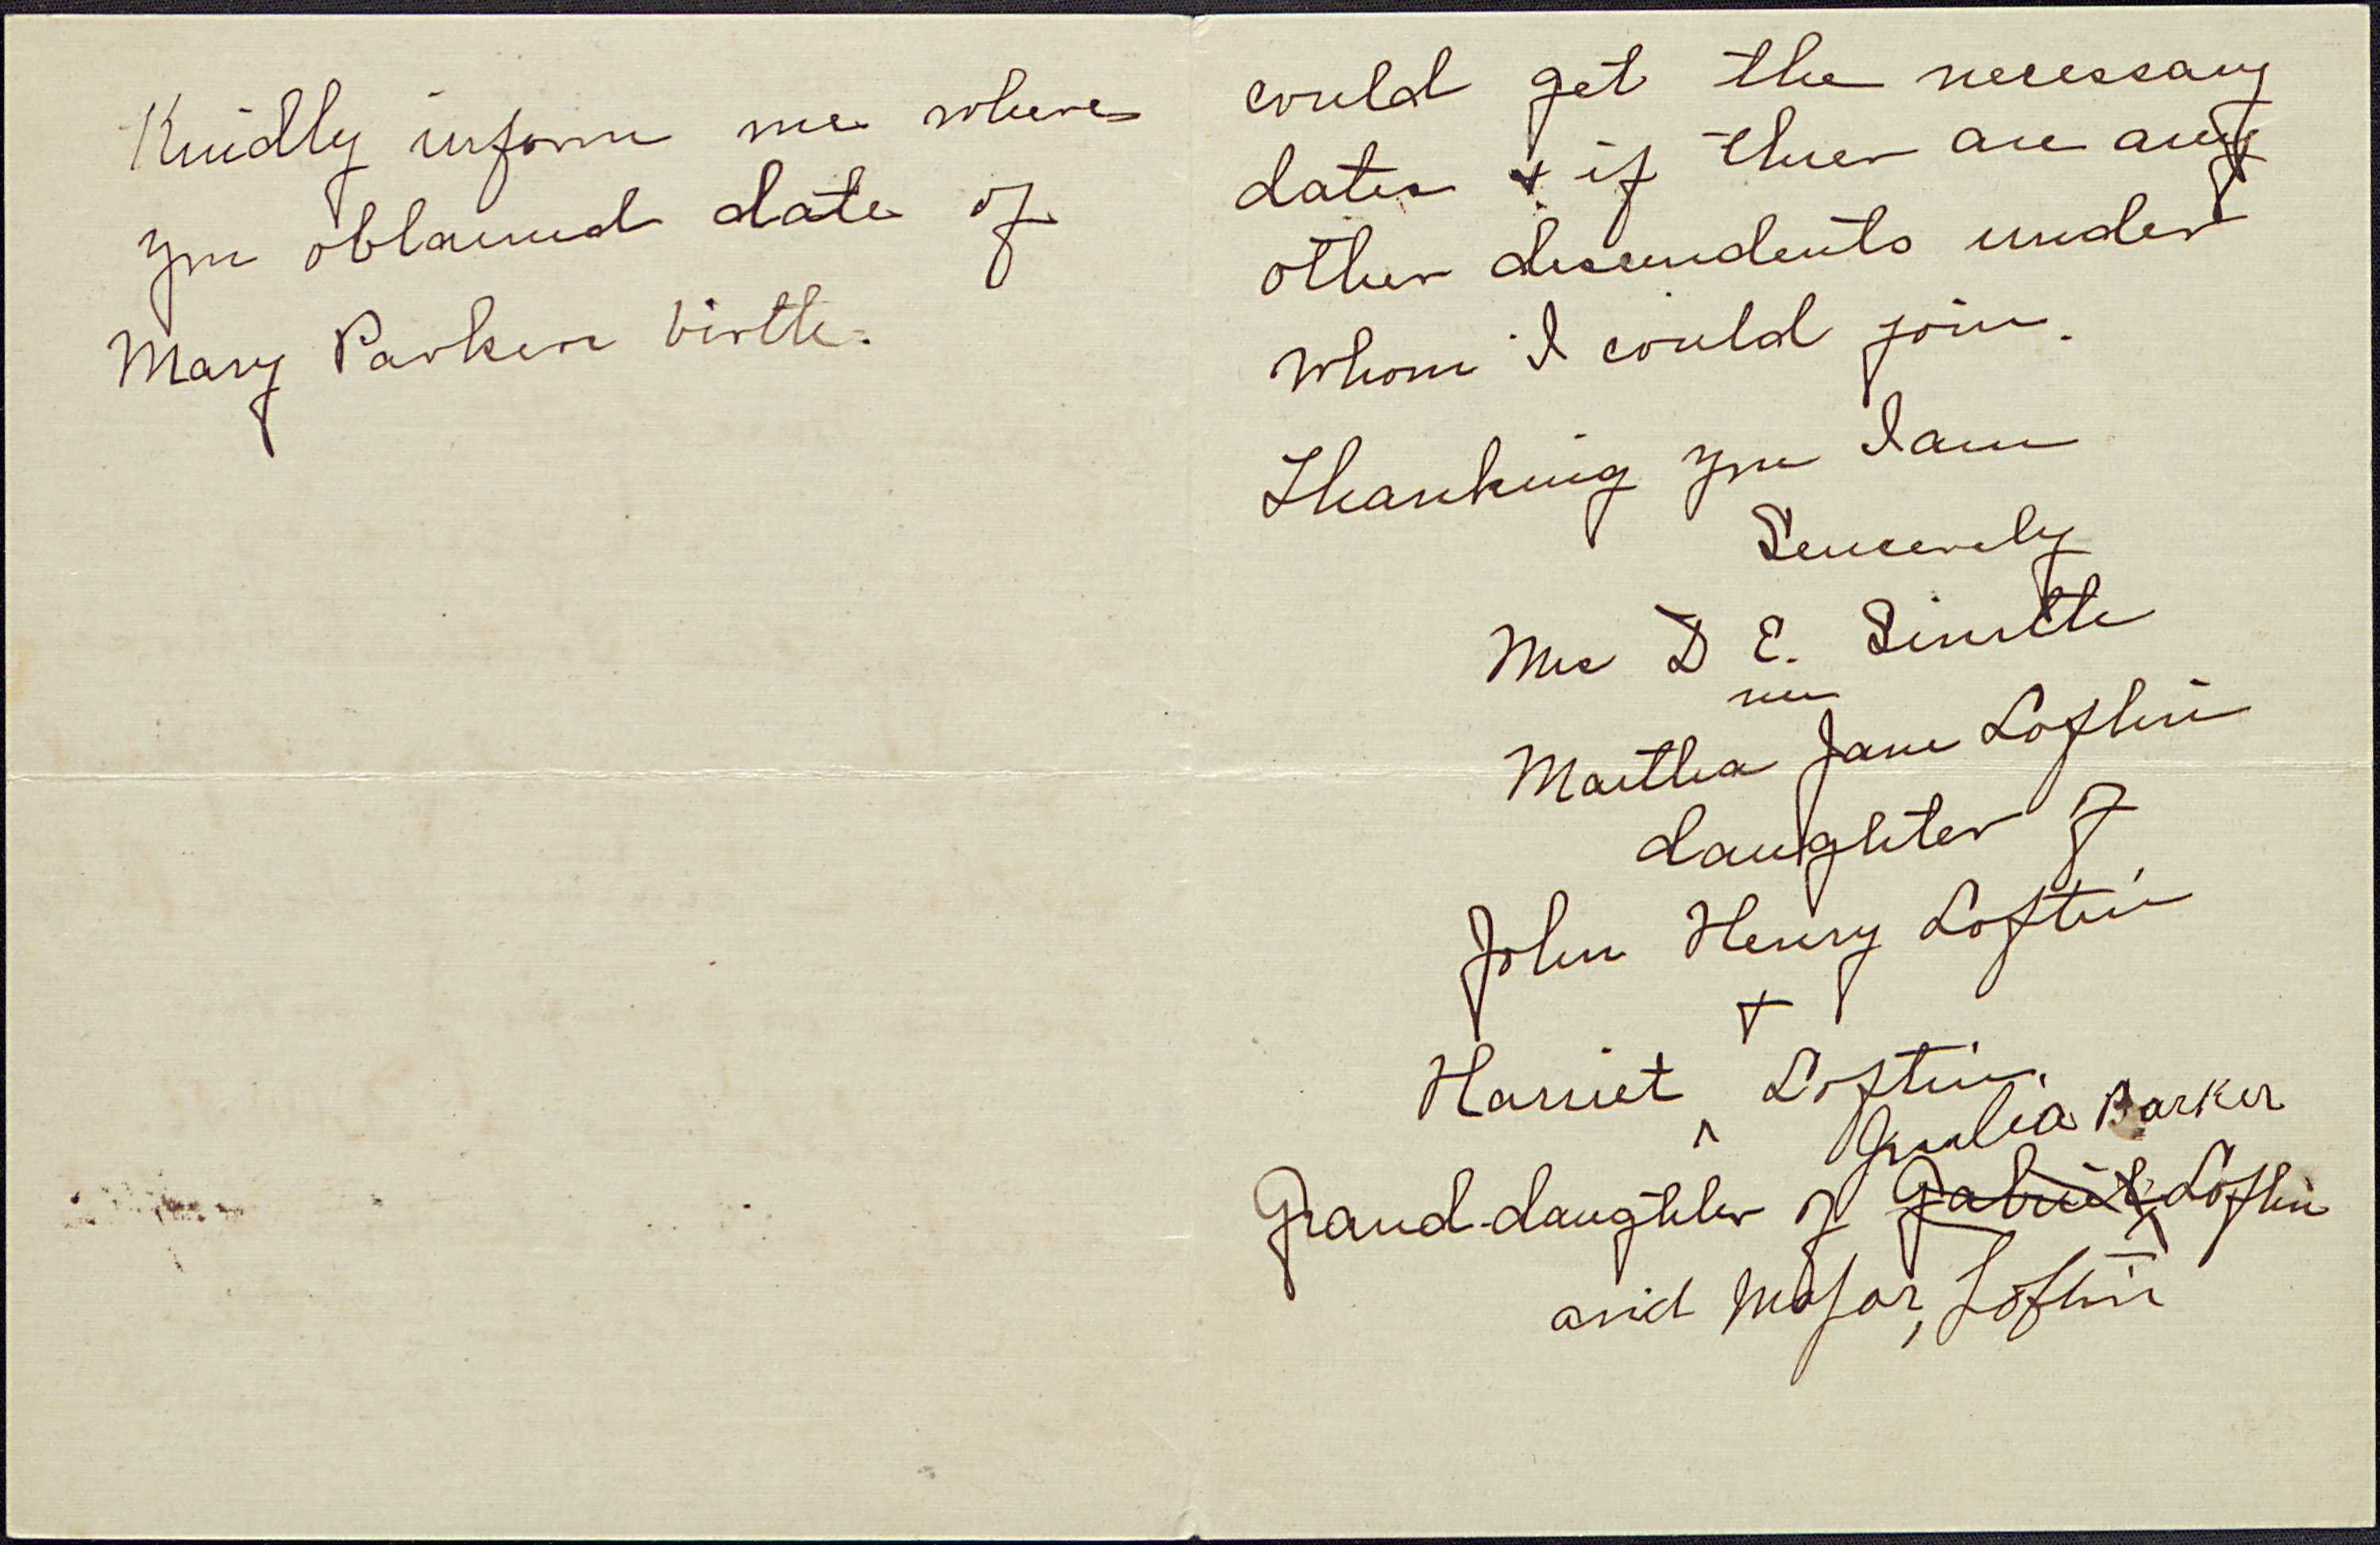 Kindly inform me where
you obtained date of
Mary Parkers birth.
could get the necessary
dates & if there are any
other descendents under
whom I could join.
Thanking you I am
Sincerely
Mrs D E. Smith
nee
Martha Jane Loftin
daughter of
John Henry Loftin
+
Harriet ^ Loftin.
Julia Parker
Grand-daughter of Gabriel Loftin
and Major, Loftin